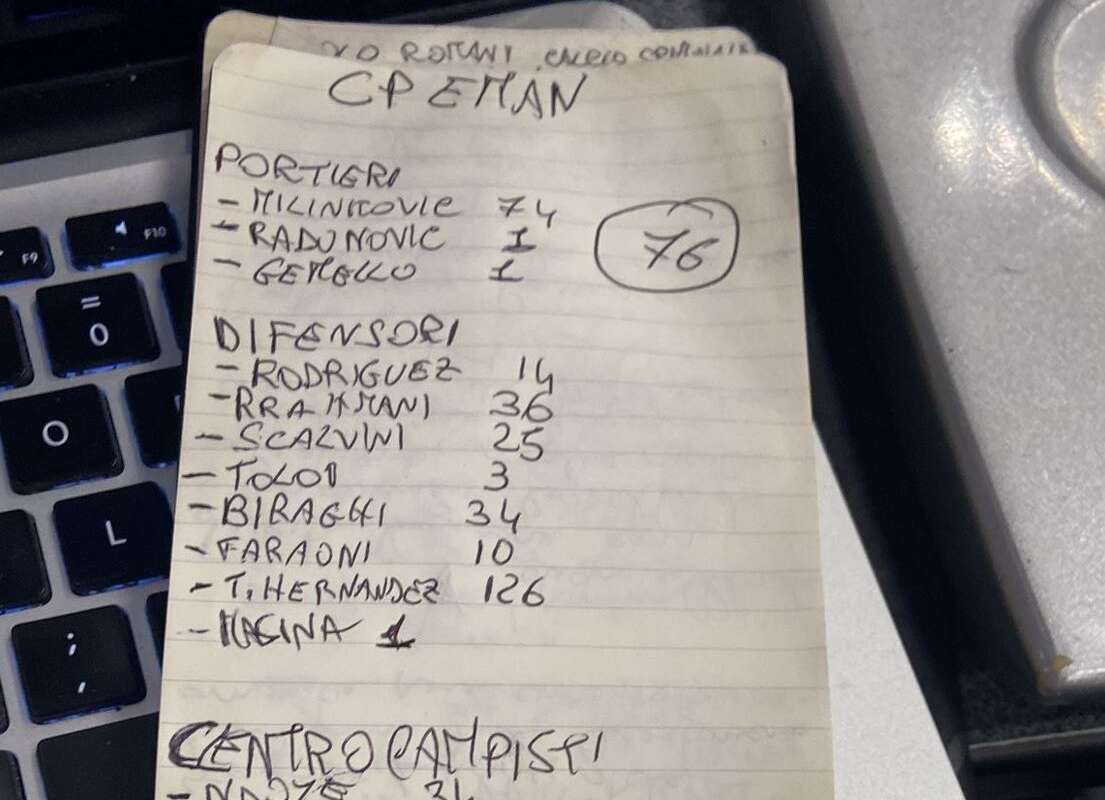 ROMANI CALCIO
CPEMAN
PORTIERI
- MILINKOVIC 74
- RADUNOVIC 1
- GEMELLO 1
76
DIFENSORI
- RODRIGUEZ 14
- RRAHMANI 36
- SCALVINI 25
- TOLOI 3
- BIRAGHI 34
- FARAONI 10
- T. HERNANDEZ 126
- MASINA 1
CENTROCAMPISTI
F9
F10
=
0
O
L
;
,